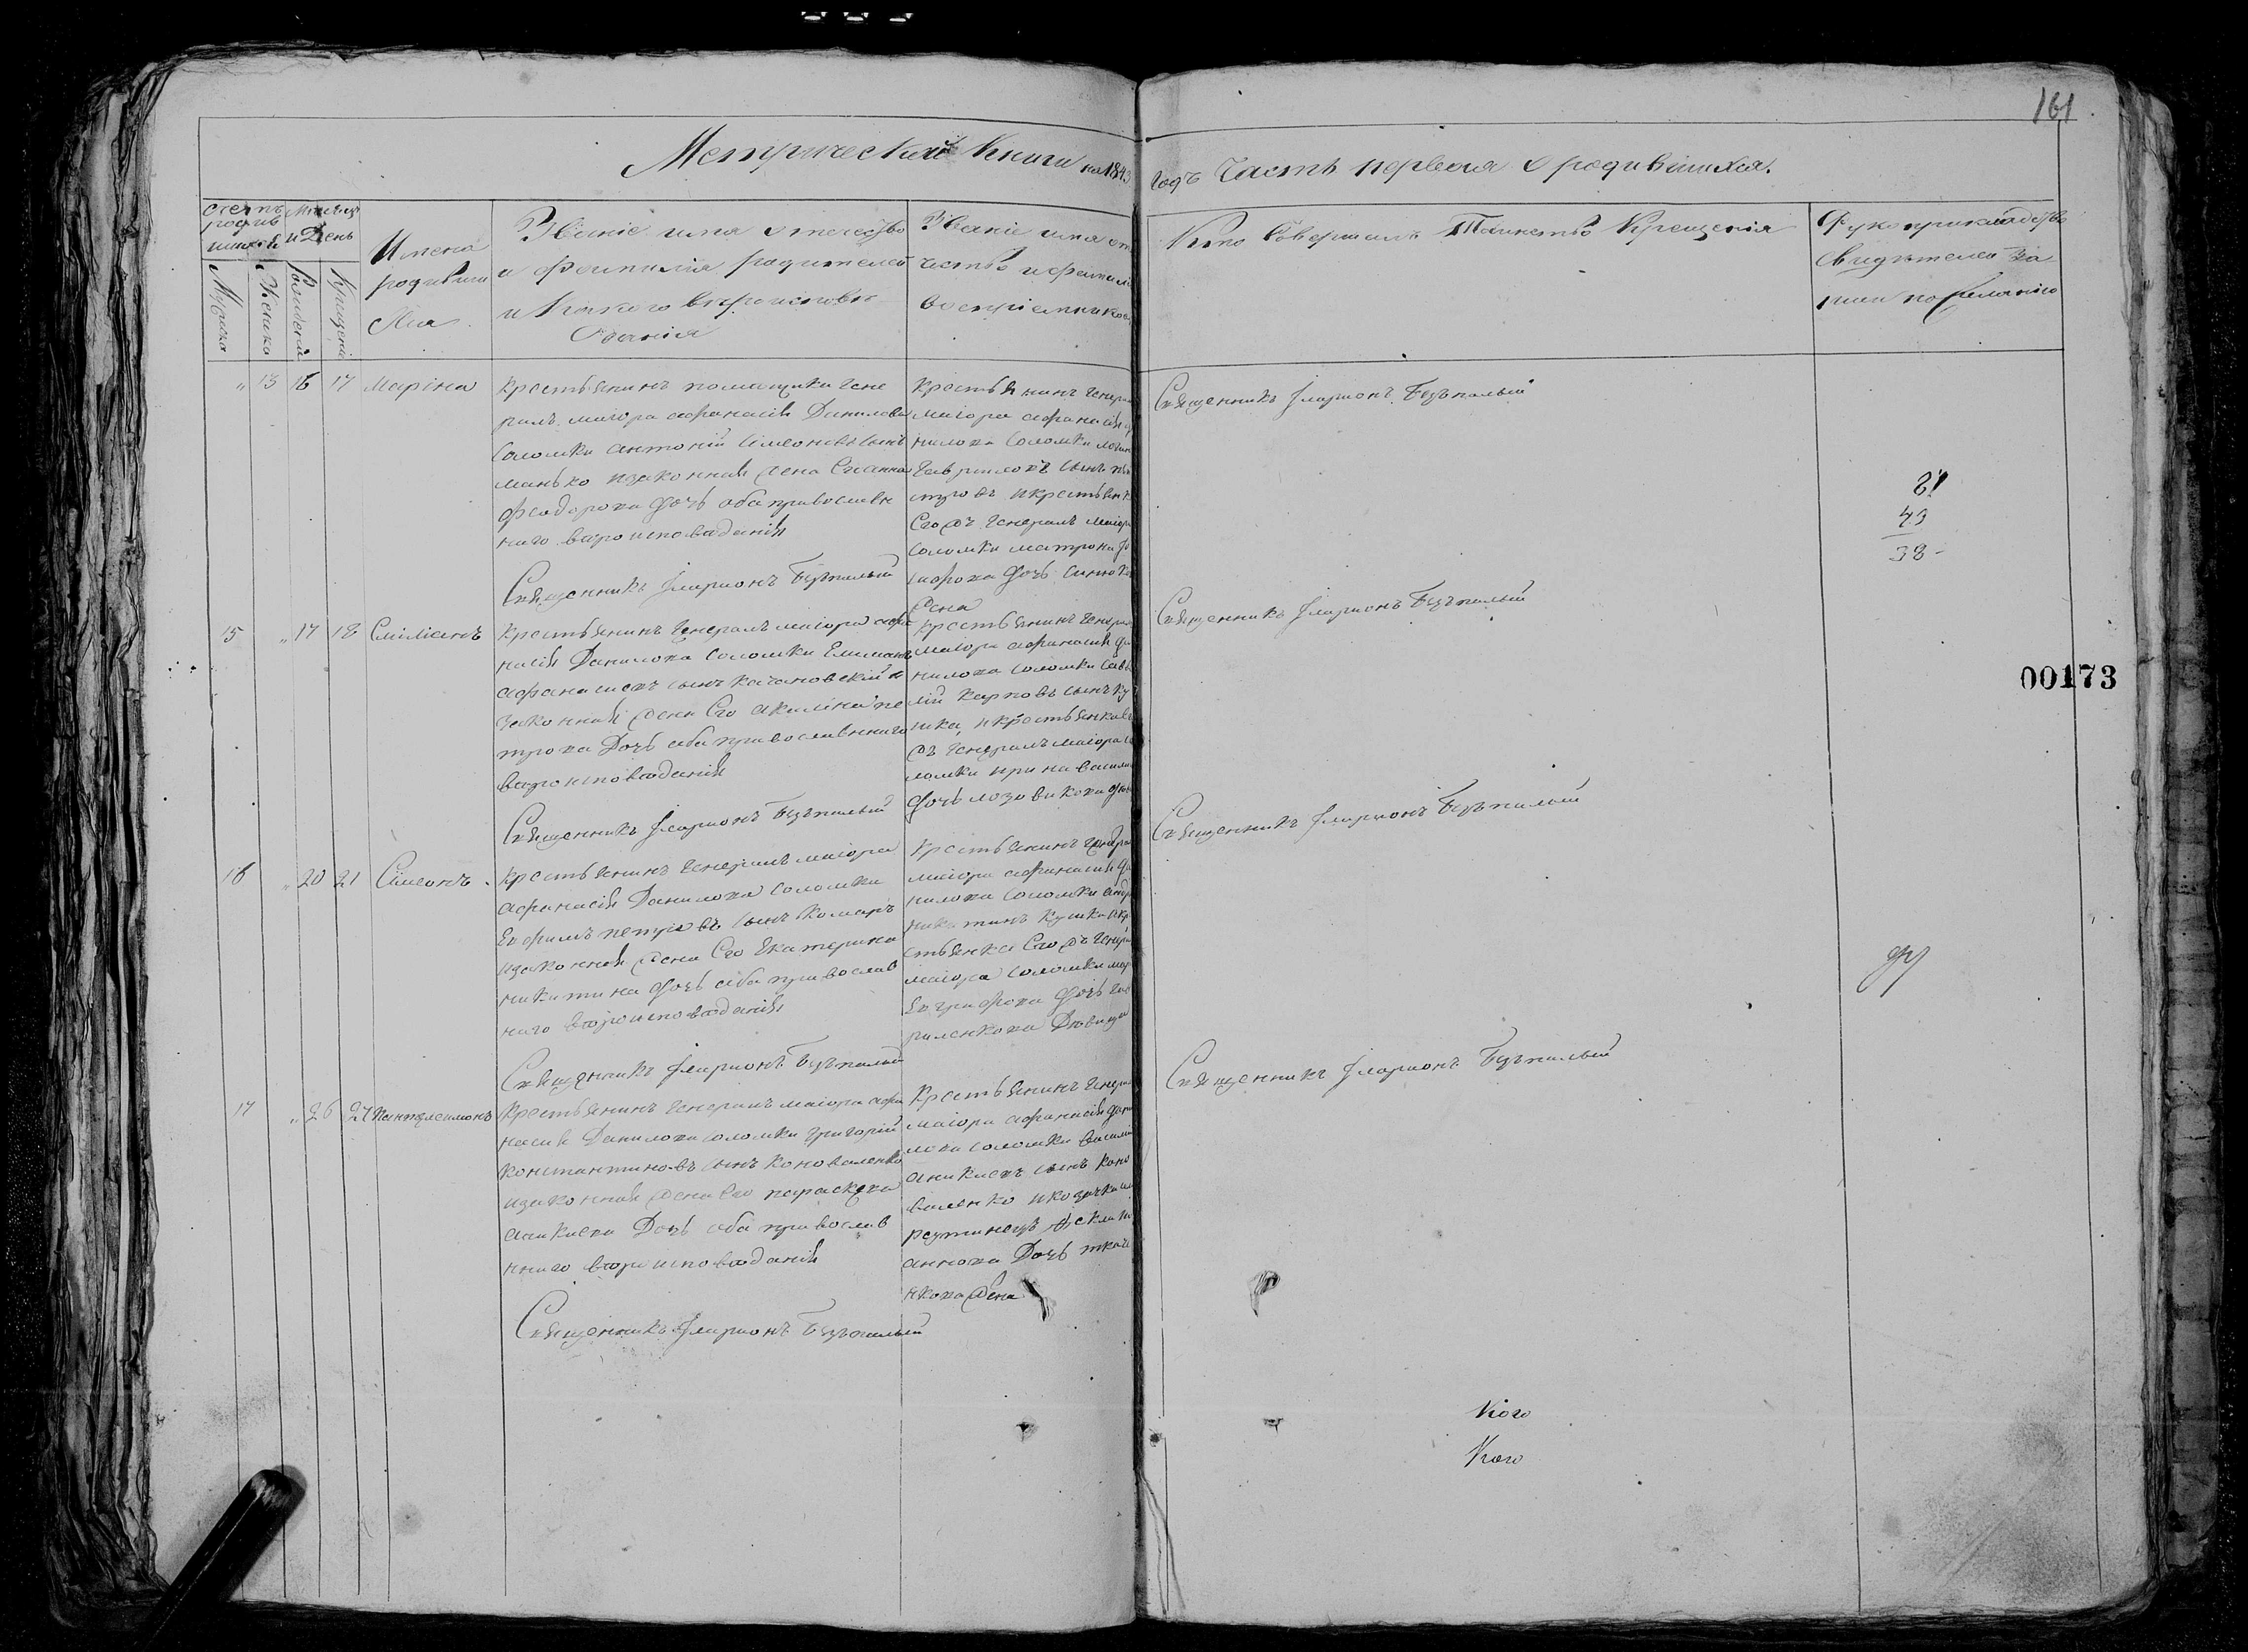 161
Метрической Книги на 1843
годъ Часть первая о родившихся.
Счетъ
родив
шихся
Мѣсяцъ
и День
Мужеска
Женска
Рожденія
Крещенія
Имена
родивши
хся
Званіе имя отечество
и фамилія родителей
и какого вѣроисповѣ
данія
Званіе имя оте
чество и фамилі
воспріемниковъ
Кто Совершалъ Таинство Крещенія
Рукоприкладство
Свидѣтелей за
писи по желанію
" 13 16 17 Маріна
Крестьянинъ помащика гене
ралъ маіора афанасія Данилова
Соломки антоній Симеоновъ сынъ
манько изаконная жена Его анна
феодорова дочь оба православн
наго вѣроисповѣданія
Священникъ Іларионъ Безпалый
Крестьянинъ генера
маіора афанасія да
нилова Соломки
Гавриловъ сынъ
тровъ икрестьянк
Его жъ генералъ маіора
Соломки матрона
дочь
жена
Священникъ Іларионъ Безпалый
81
43
38-
15 " 17 18 Еміліанъ
Крестьянинъ генералъ маіора афа
насія Данилова Соломки Емилианъ
афанасиевъ сынъ Качановскій и
законная жена Его акилина пе
трова Дочь оба православннаго
вѣроисповѣданія
Священникъ Іларионъ Безпалый
Крестьянинъ генерал
маіора афанасія да
нилова Соломки Сав
лій Карповъ сынъ Ку
ика, икрестьянка Ег
жъ генералъ маіора Со
ломки ирина васили
дочь лозовикова
Священникъ Іларионъ Безпалый
00173
16 " 20 21 Симеонъ
Крестьянинъ генералъ маіора
афанасія Данилова Соломки
Ефимъ петровъ сынъ Комаръ
изаконная жена Его Екатерина
никитина дочь оба православ
наго вѣроисповѣданія
Священникъ Іларионъ Безпалый
Крестьянинъ генера
маіора афанасія да
нилова Соломки андр
никитинъ Кулика икр
стьянка Его жъ генера
маіора Соломки мар
Евграфова дочь гав
риленкова Дѣвица
Священникъ Іларионъ Безпалый
17 " 26 27 Пантелеимонъ
Крестьянинъ генералъ маіора афа
насія Данилова Соломки григорій
константиновъ сынъ Коноваленко
изаконная жена Его параскева
аникиева Дочь оба православ
ннаго вѣроисповѣданія
Священникъ Іларионъ Безпалый
Крестьянинъ генера
маіора афанасія дани
лова Соломки василій
аникиевъ сынъ Коно
валенко иказачка
Ѳекла
аннова Дочь ткаче
нкова жена
Священникъ Іларионъ Безпалый
Кого
Кого